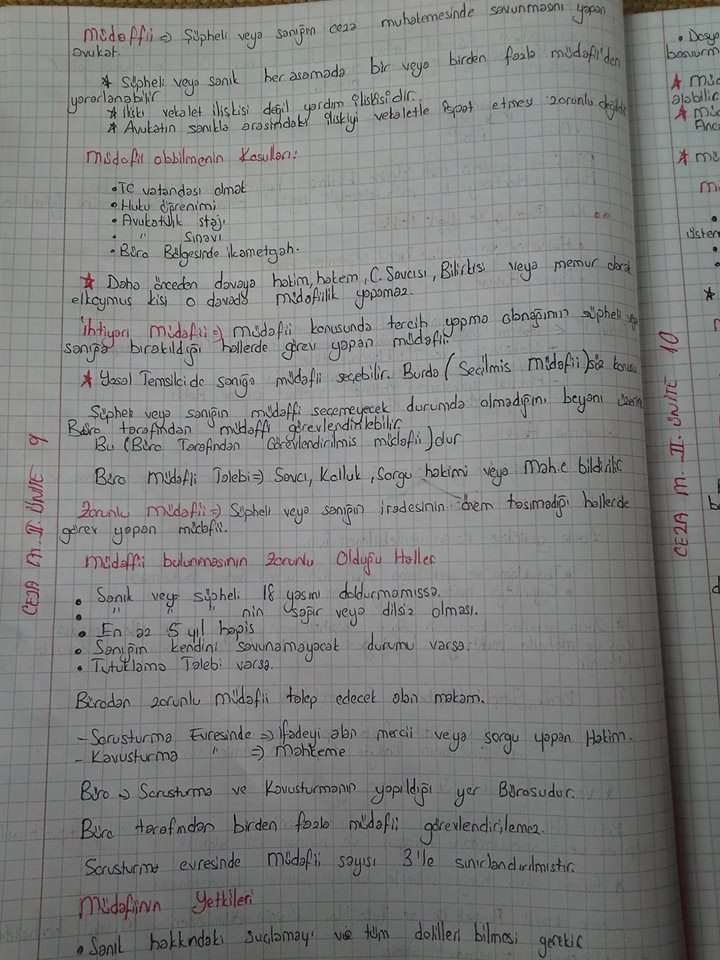 Müdaffii => Şüpheli veya sanığın ceza muhakemesinde savunmasını yapan
avukat.
* Şüpheli veya sanık her aşamada bir veya birden fazla müdafii'den
yararlanabilir
* İlişki vekalet ilişkisi değil yardım ilişkisidir.
* Avukatın sanıkla arasındaki ilişkiyi vekaletle ispat etmesi zorunlu değildir
Müdafii olabilmenin Koşulları:
• TC vatandaşı olmak
• Huku öğrenimi
• Avukatlık stajı
• " Sınavı
• Baro Bölgesinde ikametgah.
* Daha önceden davaya hakim, hakem, C. Savcısı, Bilirkişi veya memur olarak
elkoymuş kişi o davada müdafiilik yapamaz.
İhtiyari Müdafii => müdafii konusunda tercih yapma olanağının şüpheli veya
sanığa bırakıldığı hallerde görev yapan müdafii.
* Yasal Temsilcide sanığa müdafii seçebilir. Burda (Seçilmiş müdafii) söz konusu
Şüpheli veya sanığın müdaffi seçemeyecek durumda olmadığını, beyanı üzerine
Baro tarafından müdaffi görevlendirilebilir
Bu (Baro Tarafından Görevlendirilmiş müdafii) dur
Baro müdafii Talebi => Savcı, Kolluk, Sorgu hakimi veya Mah.e bildirilir
Zorunlu Müdafii => Şüpheli veya sanığın iradesinin önem taşımadığı hallerde
görev yapan müdafii.
Müdaffii bulunmasının Zorunlu Olduğu Haller
• Sanık veya şüpheli 18 yaşını doldurmamışsa.
• " " " nin sağır veya dilsiz olması.
• En az 5 yıl hapis
• Sanığın kendini savunamayacak durumu varsa.
• Tutuklama Talebi varsa.
Barodan zorunlu müdafii talep edecek olan makam.
- Soruşturma Evresinde => İfadeyi alan mercii veya sorgu yapan Hakim.
- Kovuşturma " => mahkeme
Baro -> Soruşturma ve Kovuşturmanın yapıldığı yer Barosudur.
Baro tarafından birden fazla müdafii görevlendirilemez.
Soruşturma evresinde müdafii sayısı 3'le sınırlandırılmıştır.
Müdafiinin Yetkileri
• Sanık hakkındaki suçlamayı ve tüm delilleri bilmesi gerekir
CEZA M. II. ÜNİTE 9
CEZA M. II. ÜNİTE 10